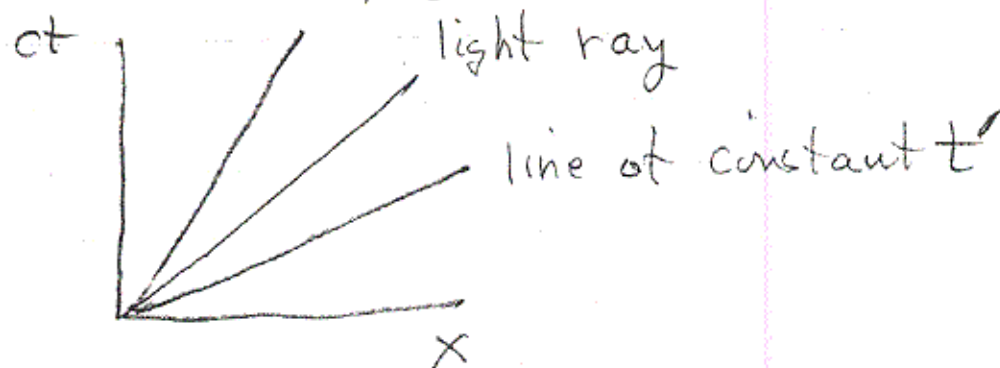 ct
light ray
line of constant t'
x